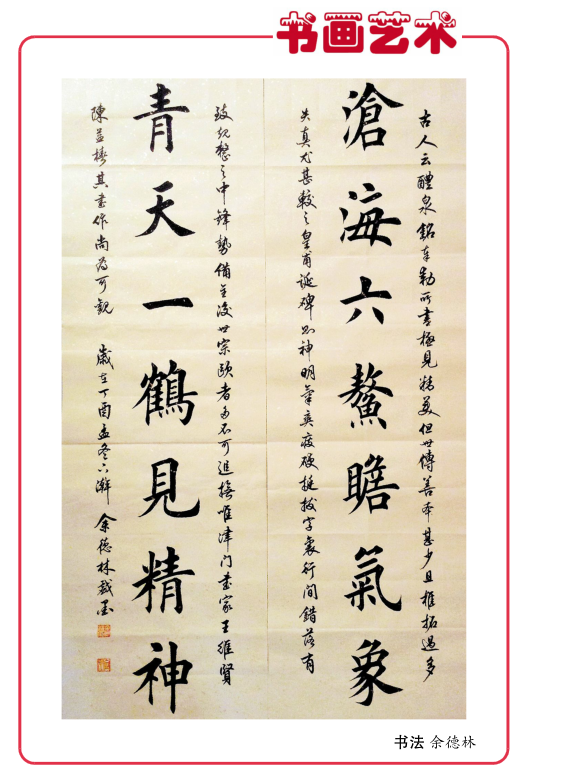 书画艺术
古人云醴泉銘奉勅所書極見精美但世傳善本甚少且椎拓過多
滄海六鰲瞻氣象
失真尤甚較之皇甫誕碑則神明氣爽瘦硬挺拔字裏行間錯落有
致規整之中鋒勢備至後世宗歐者多不可追唯津门書家王維賢
青天一鶴見精神
陳益其書作尚為可觀 歲在丁酉孟冬下澣 余德林戲墨
书法 余德林